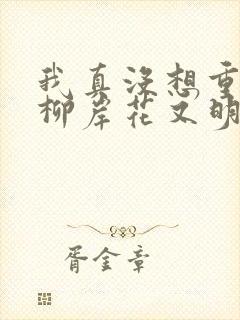 我真没想重
柳岸花又明
胥金章